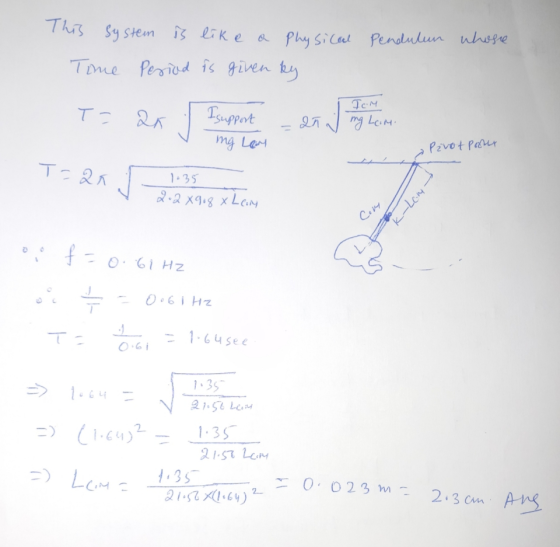 This system is like a Physical Pendulum whose
Time Period is given by
T = 2π √(I support / mg LCM) = 2π √(IC.M / mg LC.M.)
T = 2π √(1.35 / 2.2 × 9.8 × LC.M)
Pivot Point
C.M
LC.M
∵ f = 0.61 Hz
∴ 1/T = 0.61 Hz
T = 1/0.61 = 1.64 sec
⇒ 1.64 = √(1.35 / 21.56 LC.M)
⇒ (1.64)² = 1.35 / 21.56 LC.M
⇒ LC.M = 1.35 / 21.56 × (1.64)² = 0.023 m = 2.3 cm Ans